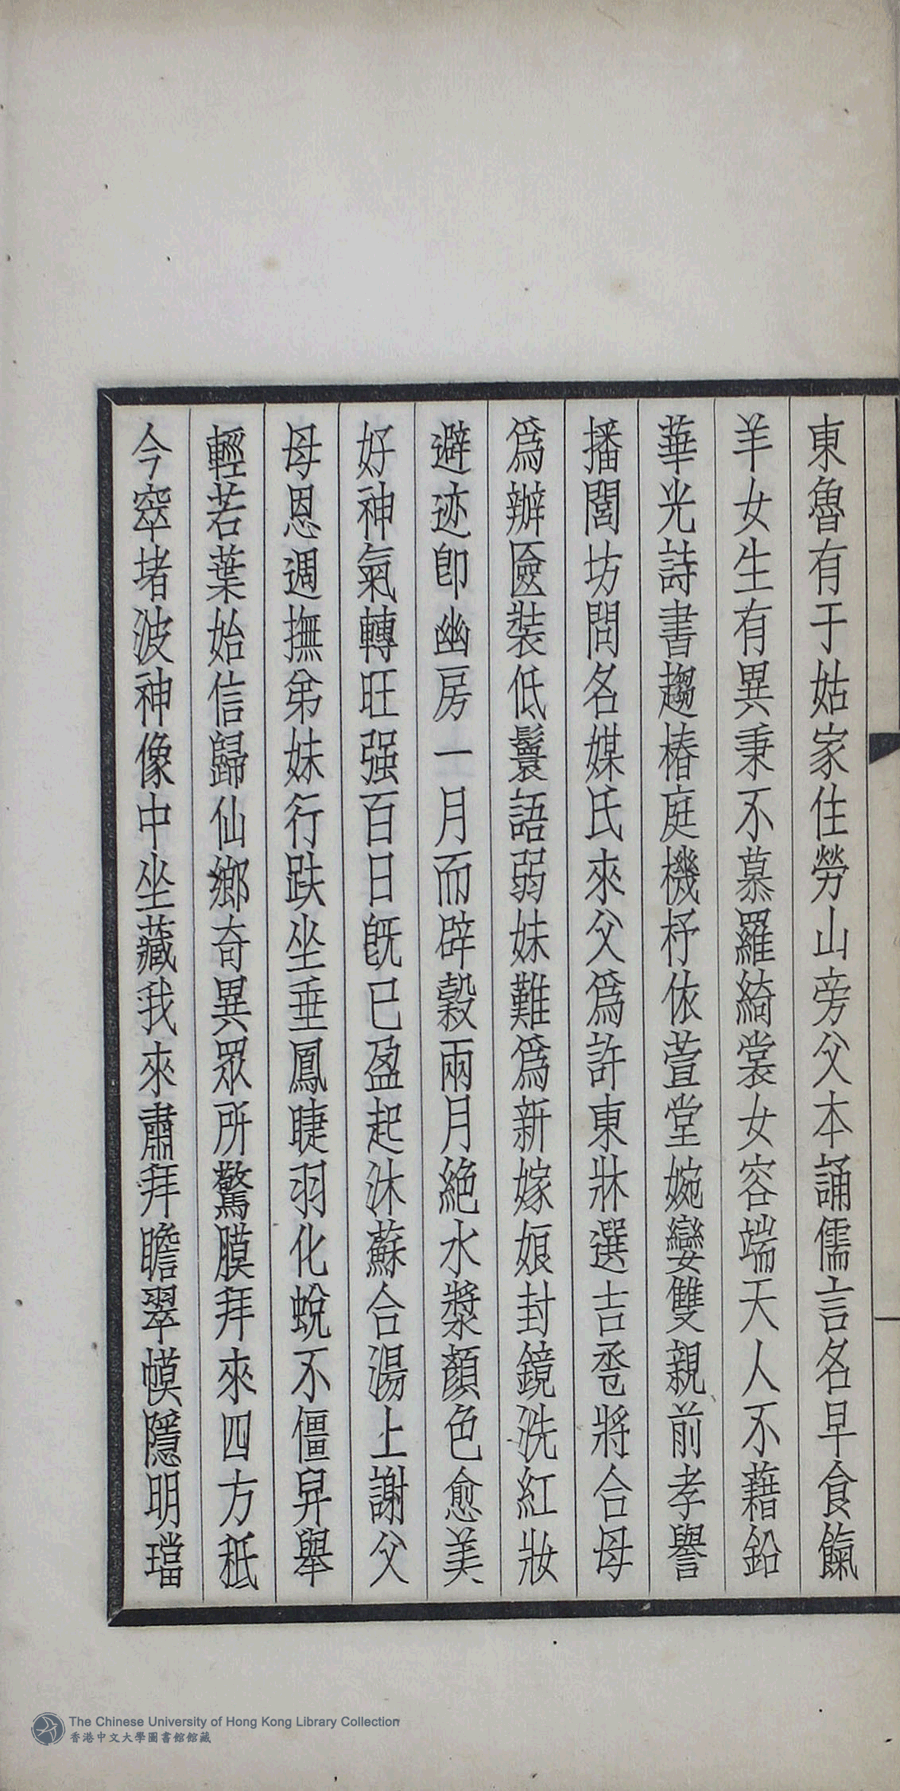 東魯有于姑家住勞山旁父本誦儒言名早食餼
羊女生有異秉不慕羅綺裳女容端天人不藉鉛
華光詩書趨椿庭機杼依萱堂婉孌雙親前孝譽
播閭坊問名媒氏來父爲許東牀選吉巹將合母
爲辦匳裝低鬟語弱妹難爲新嫁娘封鏡洗紅妝
避迹卽幽房一月而辟穀兩月絶水漿顏色愈美
好神氣轉旺强百日旣已盈起沐蘇合湯上謝父
母恩週撫弟妹行趺坐垂鳳睫羽化蛻不僵舁舉
輕若葉始信歸仙鄉奇異眾所驚膜拜來四方秪
今窣堵波神像中坐藏我來肅拜瞻翠幙隱明璫
The Chinese University of Hong Kong Library Collection
香港中文大學圖書館館藏